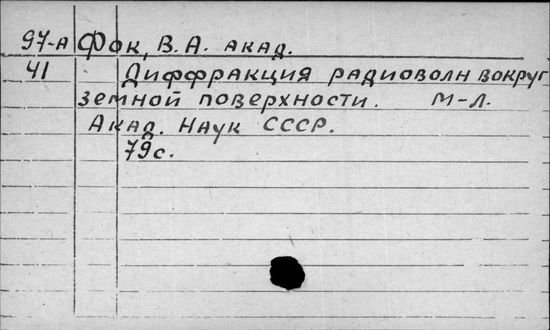 97-А Фок, В. А. акад.
41 Диффракция радиоволн вокруг
земной поверхности. М-Л.
Акад. Наук СССР.
79с.